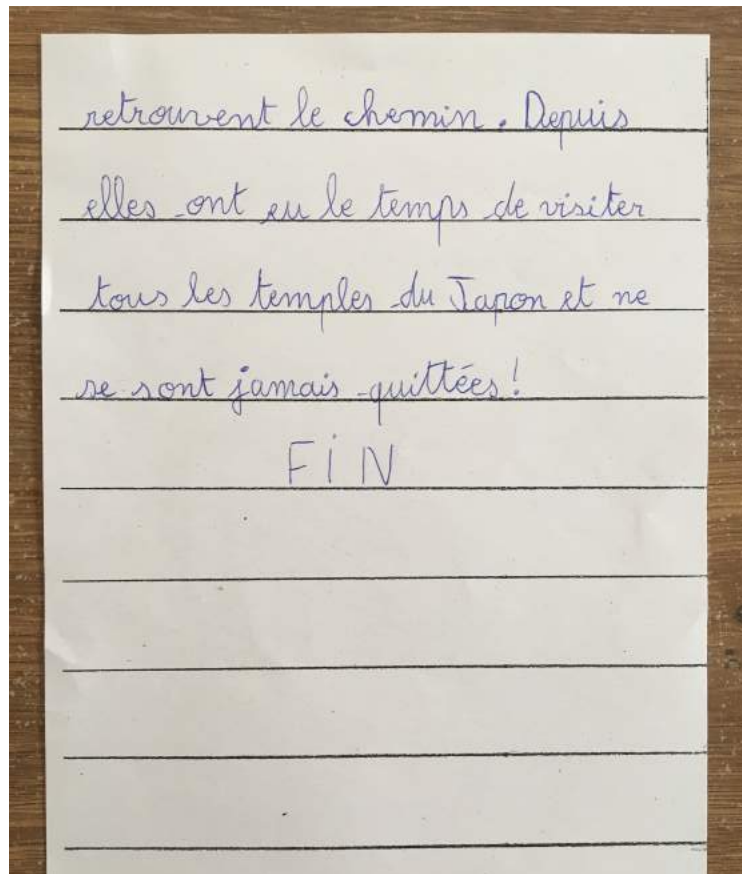 retrouvent le chemin. Depuis
elles ont eu le temps de visiter
tous les temples du Japon et ne
se sont jamais quittées !
FiN